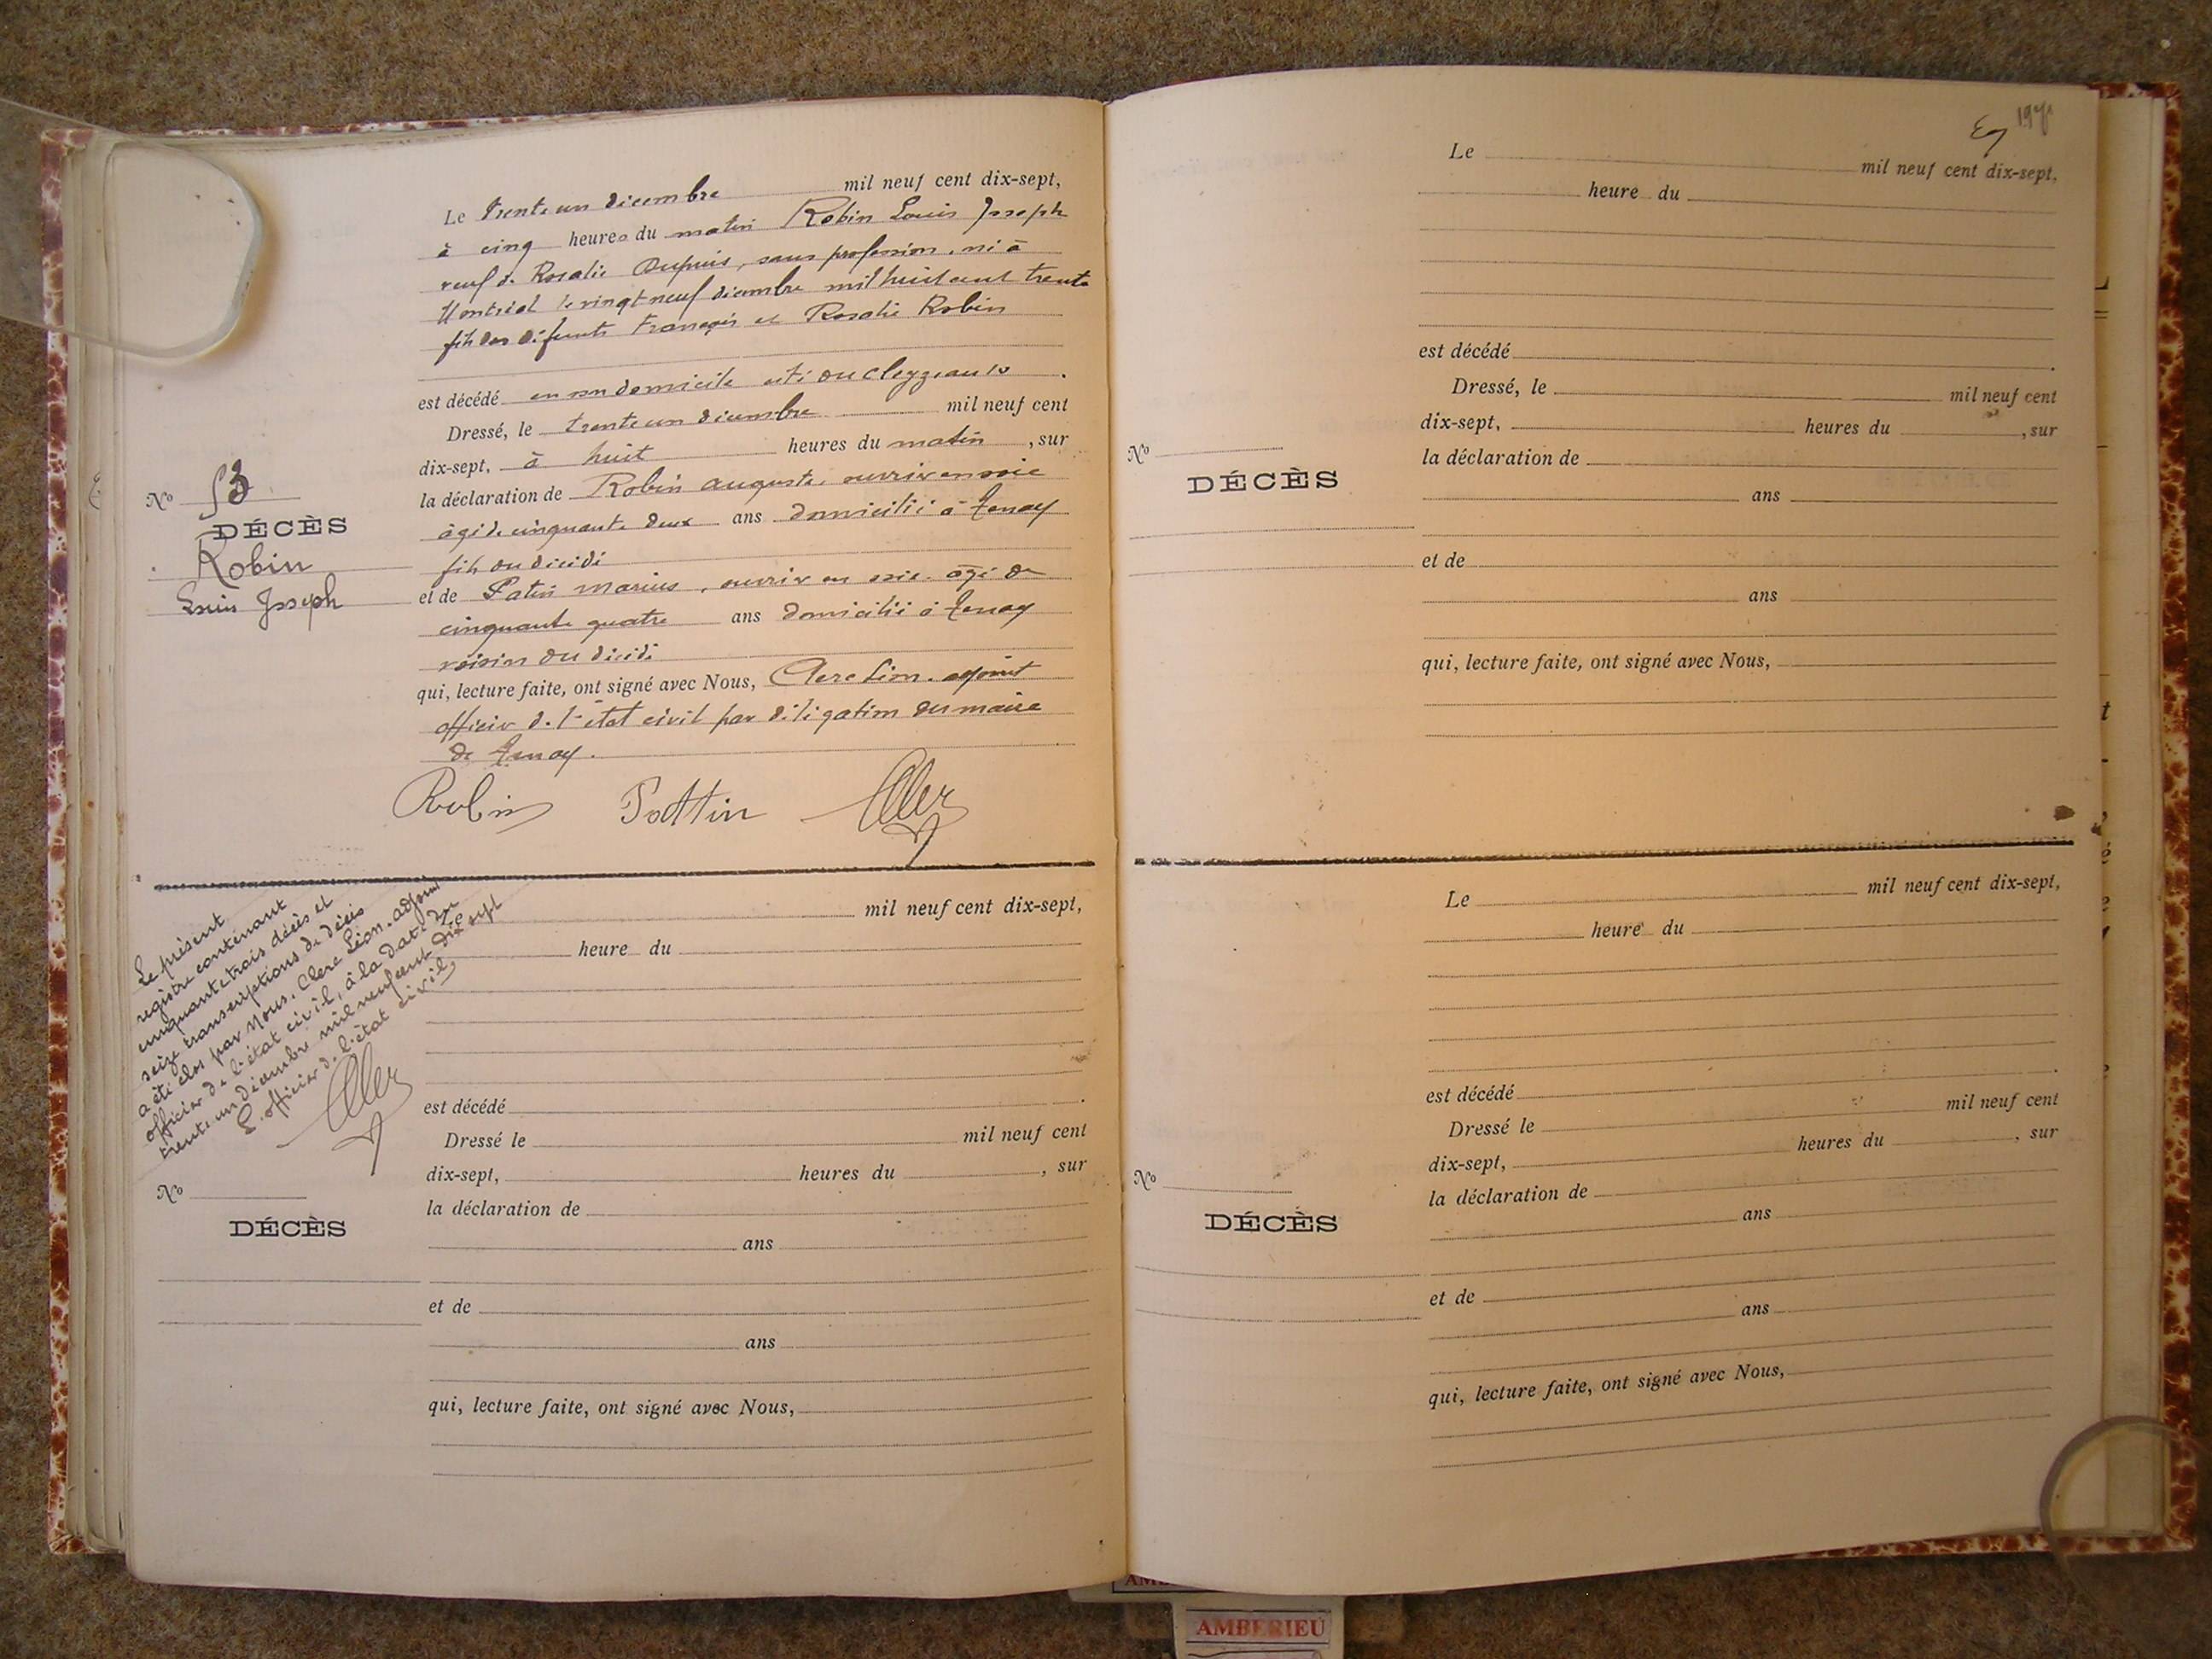 Le trente un décembre mil neuf cent dix-sept,
à cinq heures du matin Robin Louis Joseph
veuf de Rosalie Dupuis, sans profession, né à
Montréal le vingt neuf décembre mil huit cent trente
fils des défunts François et Rosalie Robin
est décédé en son domicile cité du .
Dressé, le trente un décembre mil neuf cent
dix-sept, à huit heures du matin , sur
la déclaration de Robin Auguste, ouvrier en soie
âgé de cinquante deux ans domicilié à Tenay
fils du décédé
et de Patin Marius, ouvrier en soie, âgé de
cinquante quatre ans domicilié à Tenay
voisin du décédé
qui, lecture faite, ont signé avec Nous, Clerc Léon, adjoint
officier de l'état civil par délégation du maire
de Tenay.
Robin Pattin Clerc
No 53
DÉCÈS
Robin
Louis Joseph
Le présent
registre contenant
cinquante trois décès et
seize transcriptions de décès
a été clos par Nous, Clerc Léon, adjoint
officier de l'état civil, à la date du
trente un décembre mil neuf cent dix sept
L'officier de l'état civil,
Clerc
Le mil neuf cent dix-sept,
heure du
est décédé .
Dressé le mil neuf cent
dix-sept, heures du , sur
la déclaration de
ans
et de
ans
qui, lecture faite, ont signé avec Nous,
No
DÉCÈS
Le mil neuf cent dix-sept,
heure du
est décédé .
Dressé, le mil neuf cent
dix-sept, heures du , sur
la déclaration de
ans
et de
ans
qui, lecture faite, ont signé avec Nous,
No
DÉCÈS
Le mil neuf cent dix-sept,
heure du
est décédé .
Dressé le mil neuf cent
dix-sept, heures du , sur
la déclaration de
ans
et de
ans
qui, lecture faite, ont signé avec Nous,
No
DÉCÈS
AMBERIEU